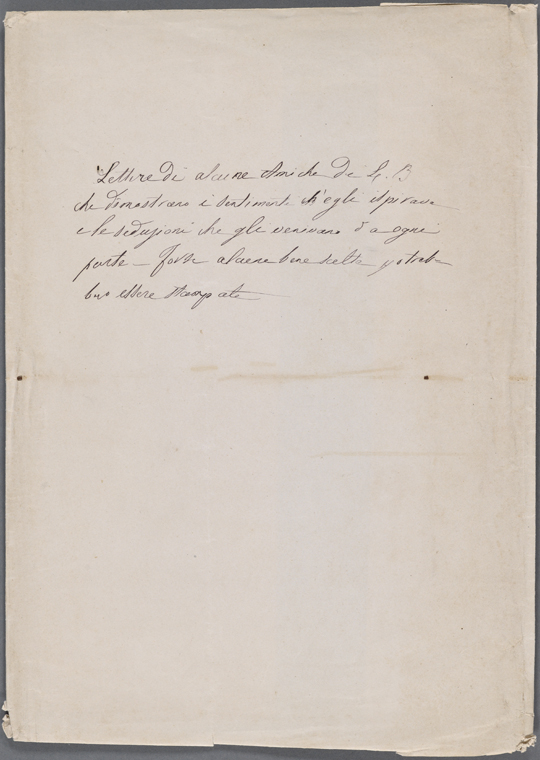 Lettere di alcune Amiche di L. B
che dimostrano i sentimenti ch'egli ispirava
e le seduzioni che gli venivano da ogni
parte — forse alcune bene scelte potreb-
bero essere stampate —